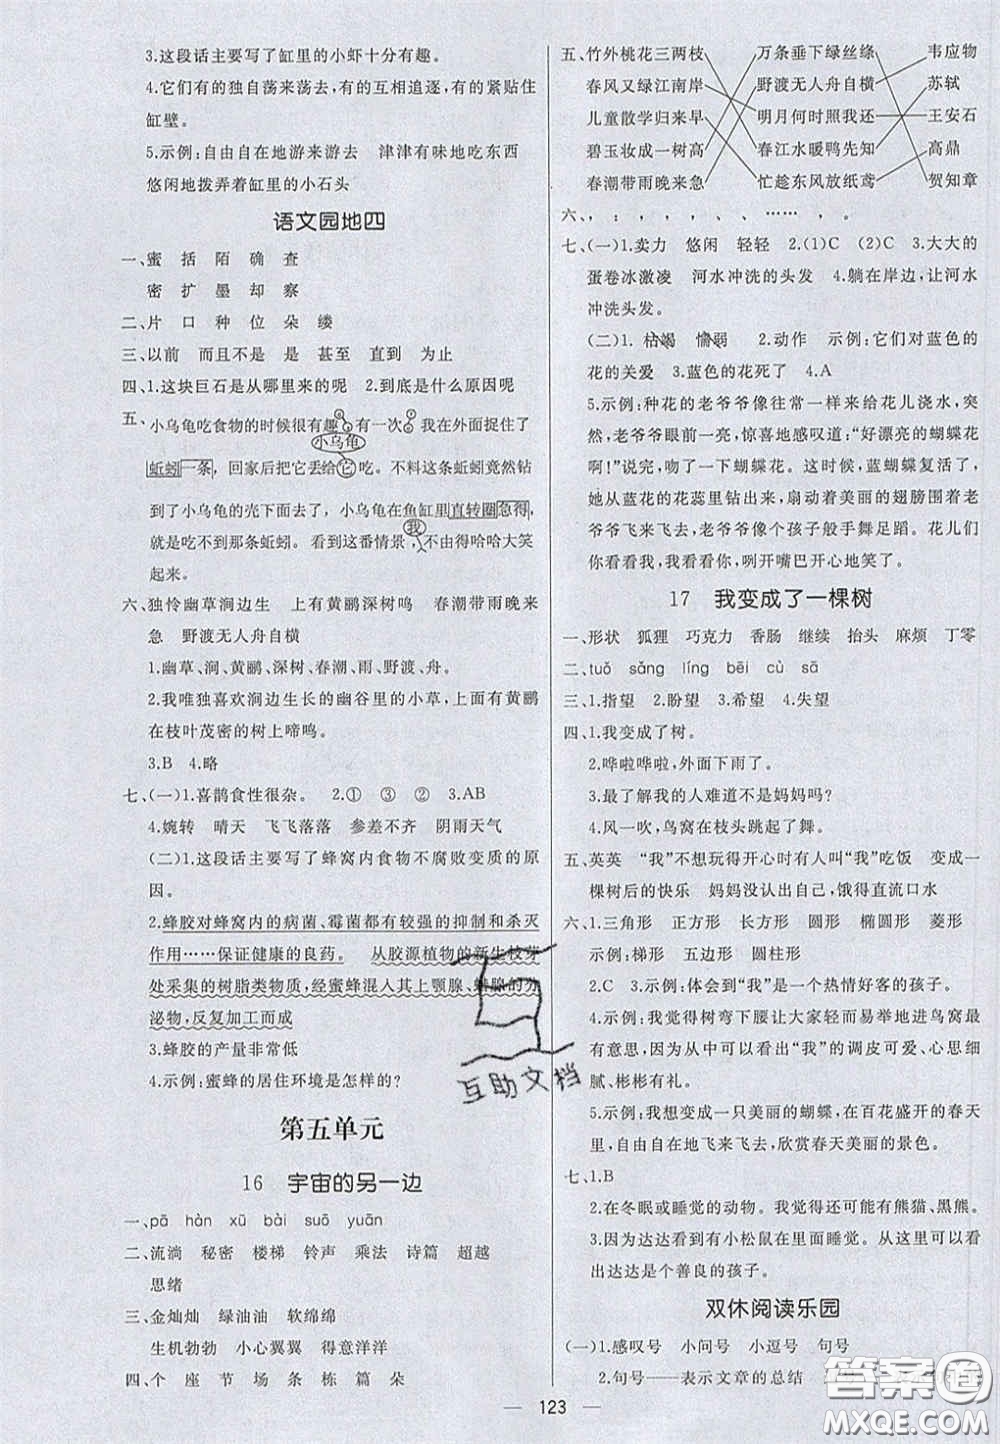 3.这段话主要写了缸里的小虾十分有趣。
4.它们有的独自荡来荡去，有的互相追逐，有的紧贴住
缸壁。
5.示例:自由自在地游来游去 津津有味地吃东西
悠闲地拨弄着缸里的小石头
语文园地四
一、蜜 括 陌 确 查
密 扩 墨 却 察
二、片 口 种 位 朵 缕
三、以前 而且不是 是 甚至 直到 为止
四、1.这块巨石是从哪里来的呢 2.到底是什么原因呢
五、小乌龟吃食物的时候很有趣。有一次，我在外面捉住了
小乌龟
蚯蚓一条，回家后把它丢给它吃。不料这条蚯蚓竟然钻
到了小乌龟的壳下面去了。小乌龟在鱼缸里直转圈急得，
就是吃不到那条蚯蚓。看到这番情景，不由得哈哈大笑
我
起来。
六、独怜幽草涧边生 上有黄鹂深树鸣 春潮带雨晚来
急 野渡无人舟自横
1.幽草、涧、黄鹂、深树、春潮、雨、野渡、舟。
2.我唯独喜欢涧边生长的幽谷里的小草，上面有黄鹂
在枝叶茂密的树上啼鸣。
3.B 4.略
七、(一)1.喜鹊食性很杂。 2.① ③ ② 3.AB
4.婉转 晴天 飞飞落落 参差不齐 阴雨天气
(二)1.这段话主要写了蜂窝内食物不腐败变质的原
因。
2.蜂胶对蜂窝内的病菌、霉菌都有较强的抑制和杀灭
作用……保证健康的良药。 从胶源植物的新生枝芽
处采集的树脂类物质，经蜜蜂混入其上颚腺、蜡腺的分
泌物，反复加工而成
3.蜂胶的产量非常低
4.示例:蜜蜂的居住环境是怎样的?
第五单元
16 宇宙的另一边
一、pā hàn xū bài suō yuān
二、流淌 秘密 楼梯 铃声 乘法 诗篇 超越
思绪
三、金灿灿 绿油油 软绵绵
生机勃勃 小心翼翼 得意洋洋
四、个 座 节 场 条 栋 篇 朵
五、竹外桃花三两枝 万条垂下绿丝绦 韦应物
春风又绿江南岸 野渡无人舟自横 苏轼
儿童散学归来早 明月何时照我还 王安石
碧玉妆成一树高 春江水暖鸭先知 高鼎
春潮带雨晚来急 忙趁东风放纸鸢 贺知章
六、， ： ， ， ， 、 …… ， 。
七、(一)1.卖力 悠闲 轻轻 2.(1)C (2)C 3.大大的
蛋卷冰激凌 河水冲洗的头发 4.躺在岸边，让河水
冲洗头发。
(二)1.枯竭 懦弱 2.动作 示例:它们对蓝色的
花的关爱 3.蓝色的花死了 4.A
5.示例:种花的老爷爷像往常一样来给花儿浇水，突
然老爷爷眼前一亮，惊喜地感叹道:“好漂亮的蝴蝶花
啊!”说完，吻了一下蝴蝶花。只听“啵”的一声，蓝蝴蝶复活了，
她从蓝花的花蕊里钻出来，扇动着美丽的翅膀围着老
爷爷飞来飞去，老爷爷像个孩子般手舞足蹈。花儿们
你看看我，我看看你，咧开嘴巴开心地笑了。
17 我变成了一棵树
一、形状 狐狸 巧克力 香肠 继续 抬头 麻烦 丁零
二、tuǒ sǎng líng bēi cù sā
三、1.指望 2.盼望 3.希望 4.失望
四、1.我变成了树。
2.哗啦哗啦，外面下起了大雨。
3.最了解我的人难道不是妈妈吗?
4.风一吹，鸟窝在枝头跳起了舞。
五、英英 “我”不想玩得开心时有人叫“我”吃饭 变成一
棵树后的快乐 妈妈没认出自己，饿得直流口水
六、1.三角形 正方形 长方形 圆形 椭圆形 菱形
示例:梯形 五边形 圆柱形
2.C 3.示例:体会到“我”是一个热情好客的孩子。
4.示例:我觉得树弯下腰让大家轻而易举地进鸟窝最
有意思，因为从中可以看出“我”的调皮可爱、心思细
腻、彬彬有礼。
5.示例:我想变成一只美丽的蝴蝶，在百花盛开的春天
里，自由自在地飞来飞去，欣赏春天美丽的景色。
七、1.B
2.在冬眠或睡觉的动物。我觉得还可能有熊猫、黑熊。
3.因为达达看到有小松鼠在里面睡觉。从这里可以看
出达达是个善良的孩子。
双休阅读乐园
(一)1.感叹号 小问号 小逗号 句号
2.句号——表示文章的总结
互助文档
答案圈
MXQE.COM
123